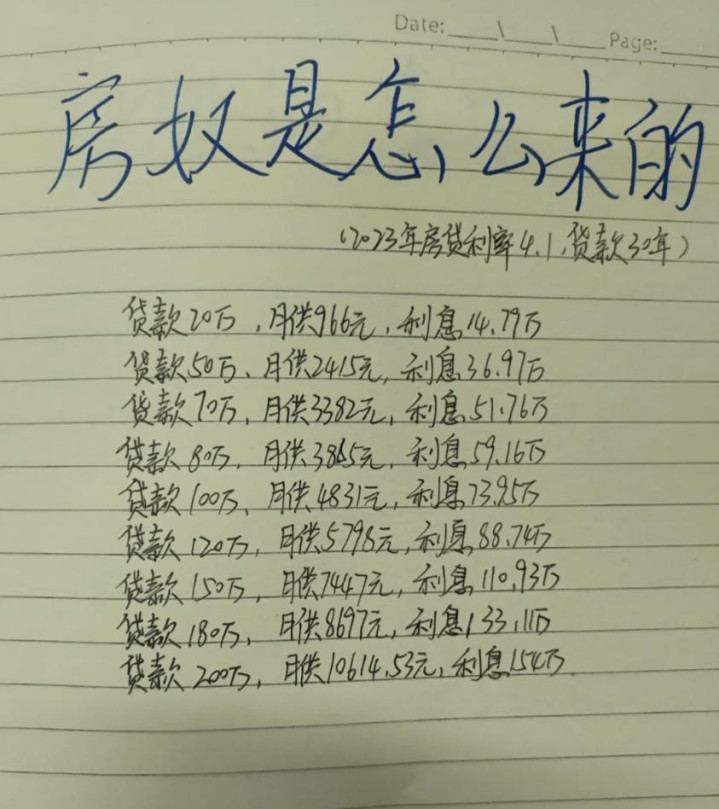 Date: ___\___\___ Page: ___
房奴是怎么来的
(2023年房贷利率4.1,贷款30年)
贷款20万,月供966元,利息14.79万
贷款50万、月供2415元,利息36.97万
贷款70万,月供3382元,利息51.76万
贷款80万,月供3865元,利息59.16万
贷款100万、月供4831元,利息73.95万
贷款120万,月供5798元,利息88.74万
贷款150万,月供7447元,利息110.93万
贷款180万,月供8697元,利息133.11万
贷款200万,月供10614.53元,利息154万